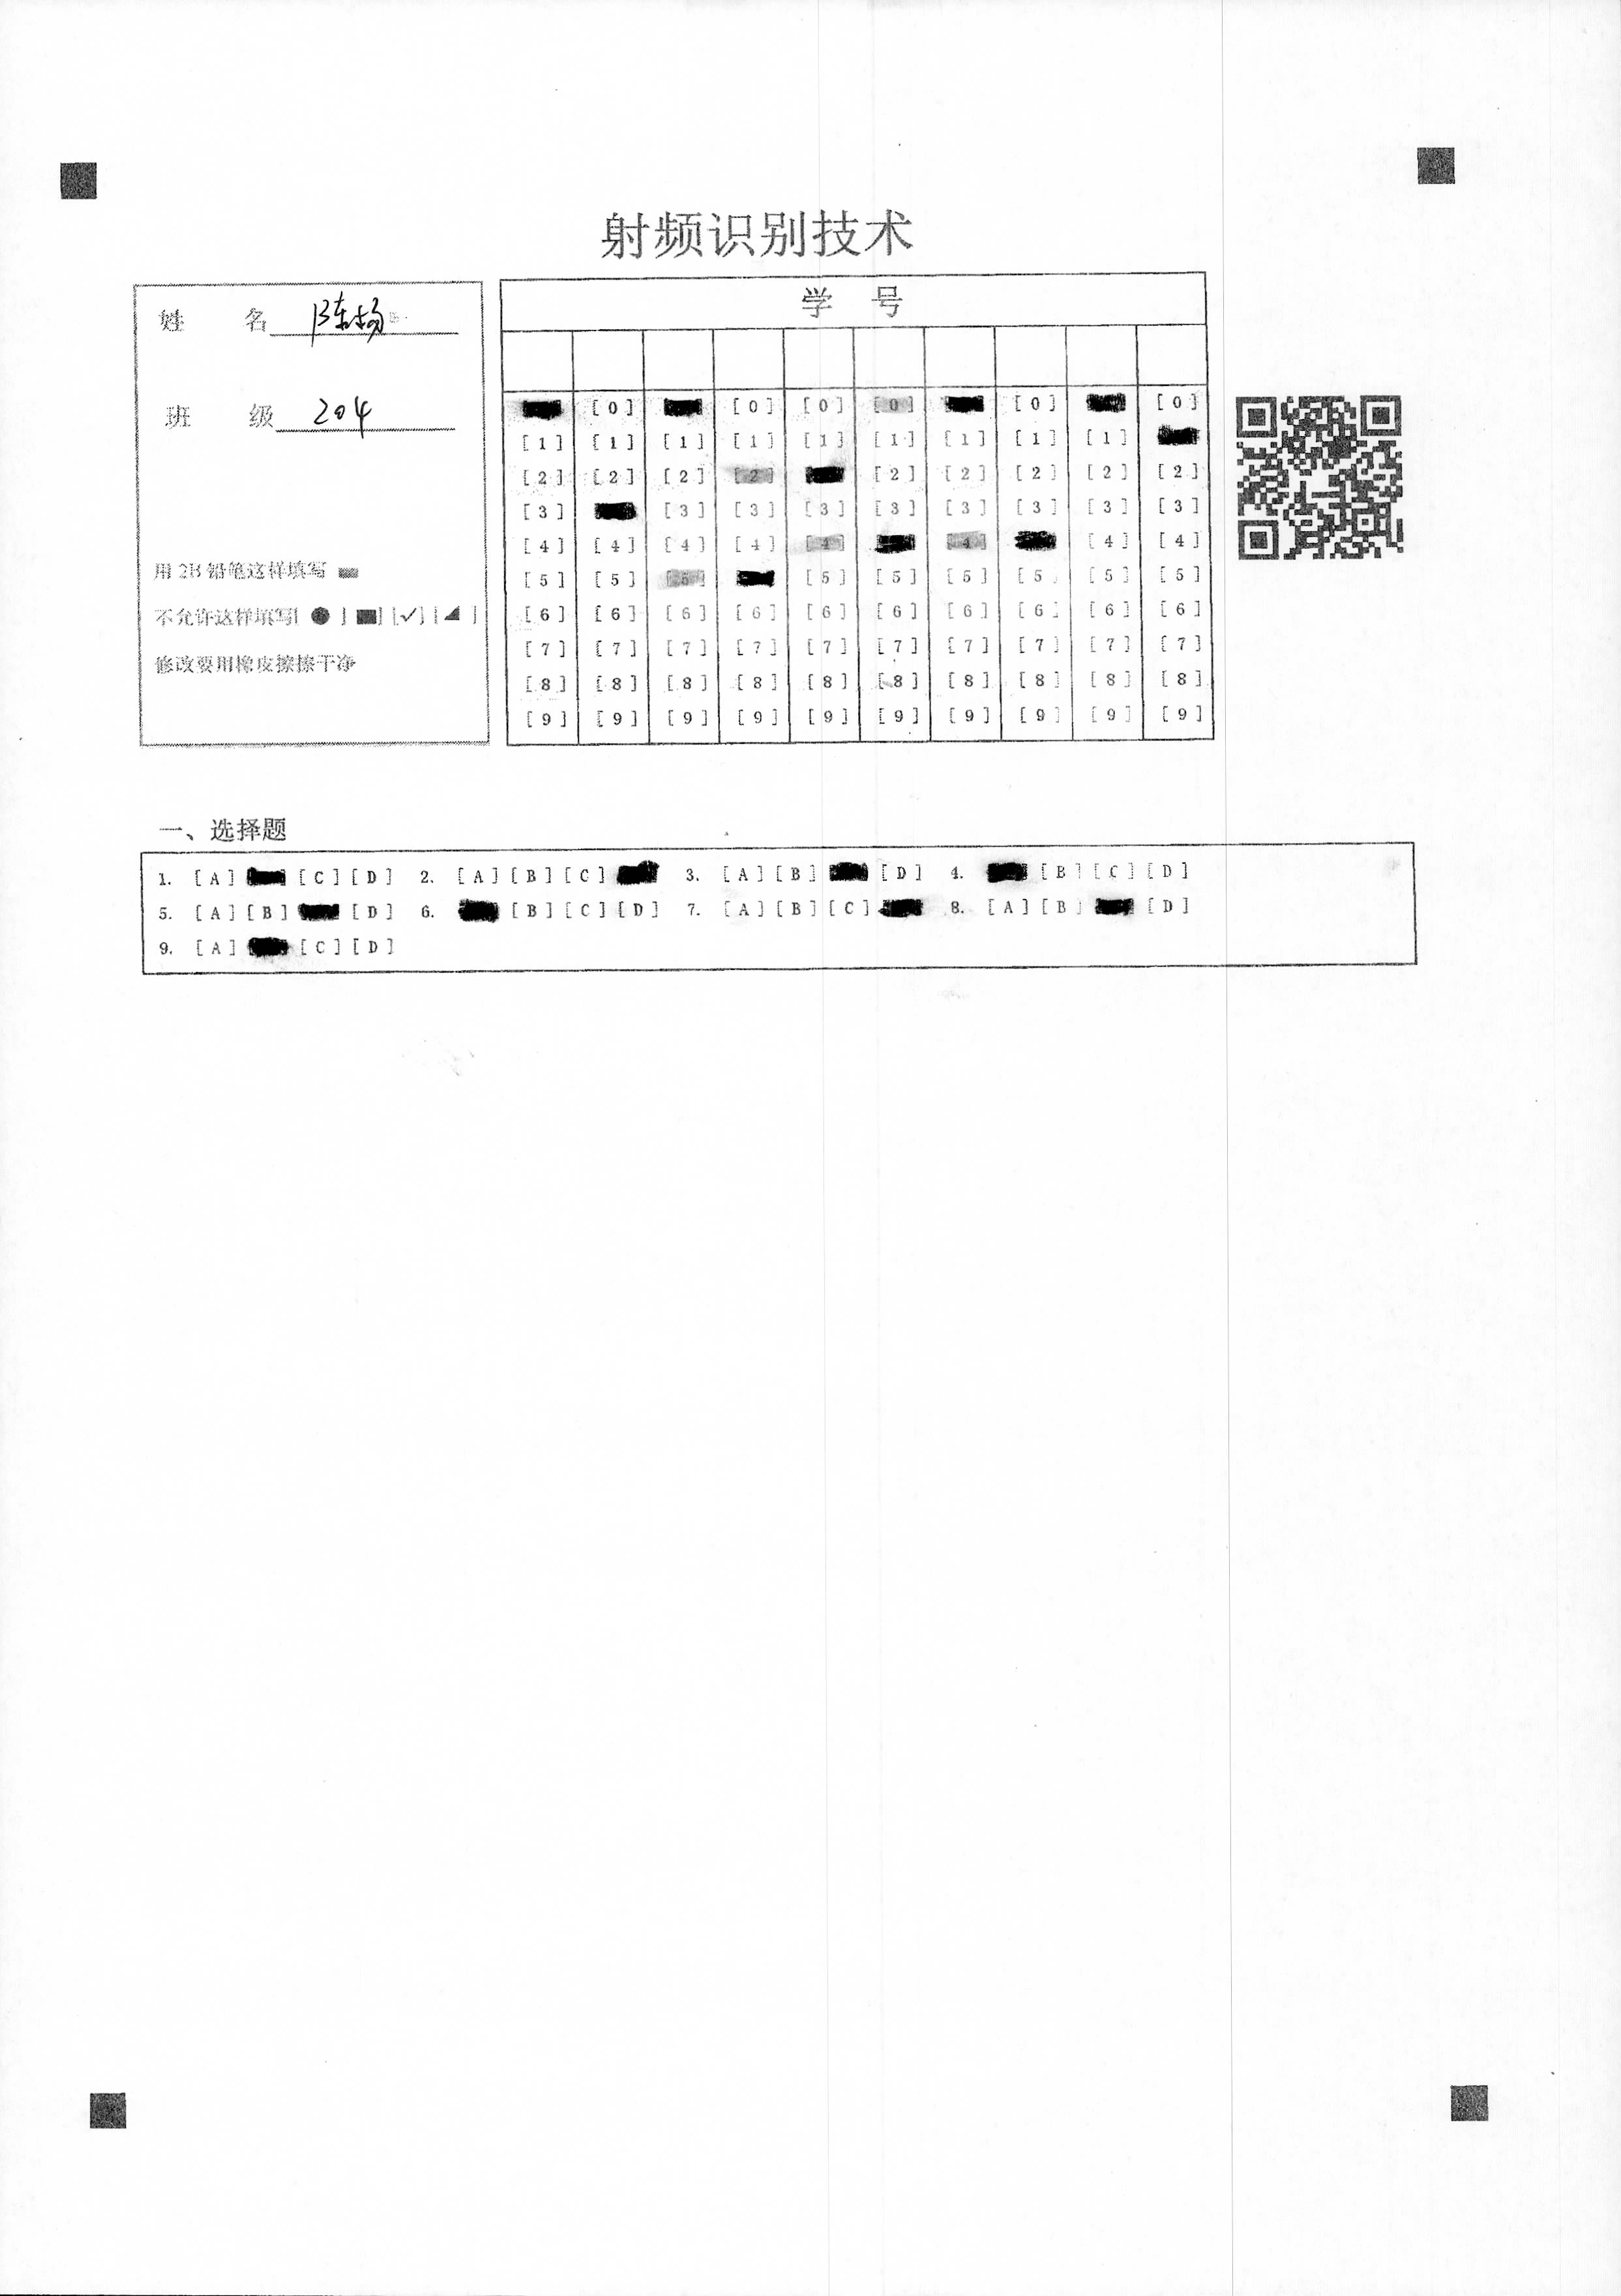 射频识别技术
姓 名 陈杨
班 级 204
用 2B 铅笔这样填写
不允许这样填写[ ● ] [■] [✓] [◢ ]
修改要用橡皮擦擦干净
学 号
[0] [0] [0] [0] [0] [0]
[1] [1] [1] [1] [1] [1] [1] [1] [1]
[2] [2] [2] [2] [2] [2] [2] [2] [2]
[3] [3] [3] [3] [3] [3] [3] [3] [3]
[4] [4] [4] [4] [4] [4] [4] [4]
[5] [5] [5] [5] [5] [5] [5] [5] [5]
[6] [6] [6] [6] [6] [6] [6] [6] [6] [6]
[7] [7] [7] [7] [7] [7] [7] [7] [7] [7]
[8] [8] [8] [8] [8] [8] [8] [8] [8] [8]
[9] [9] [9] [9] [9] [9] [9] [9] [9] [9]
一、选择题
1. [A] [C] [D] 2. [A] [B] [C] 3. [A] [B] [D] 4. [B] [C] [D]
5. [A] [B] [D] 6. [B] [C] [D] 7. [A] [B] [C] 8. [A] [B] [D]
9. [A] [C] [D]